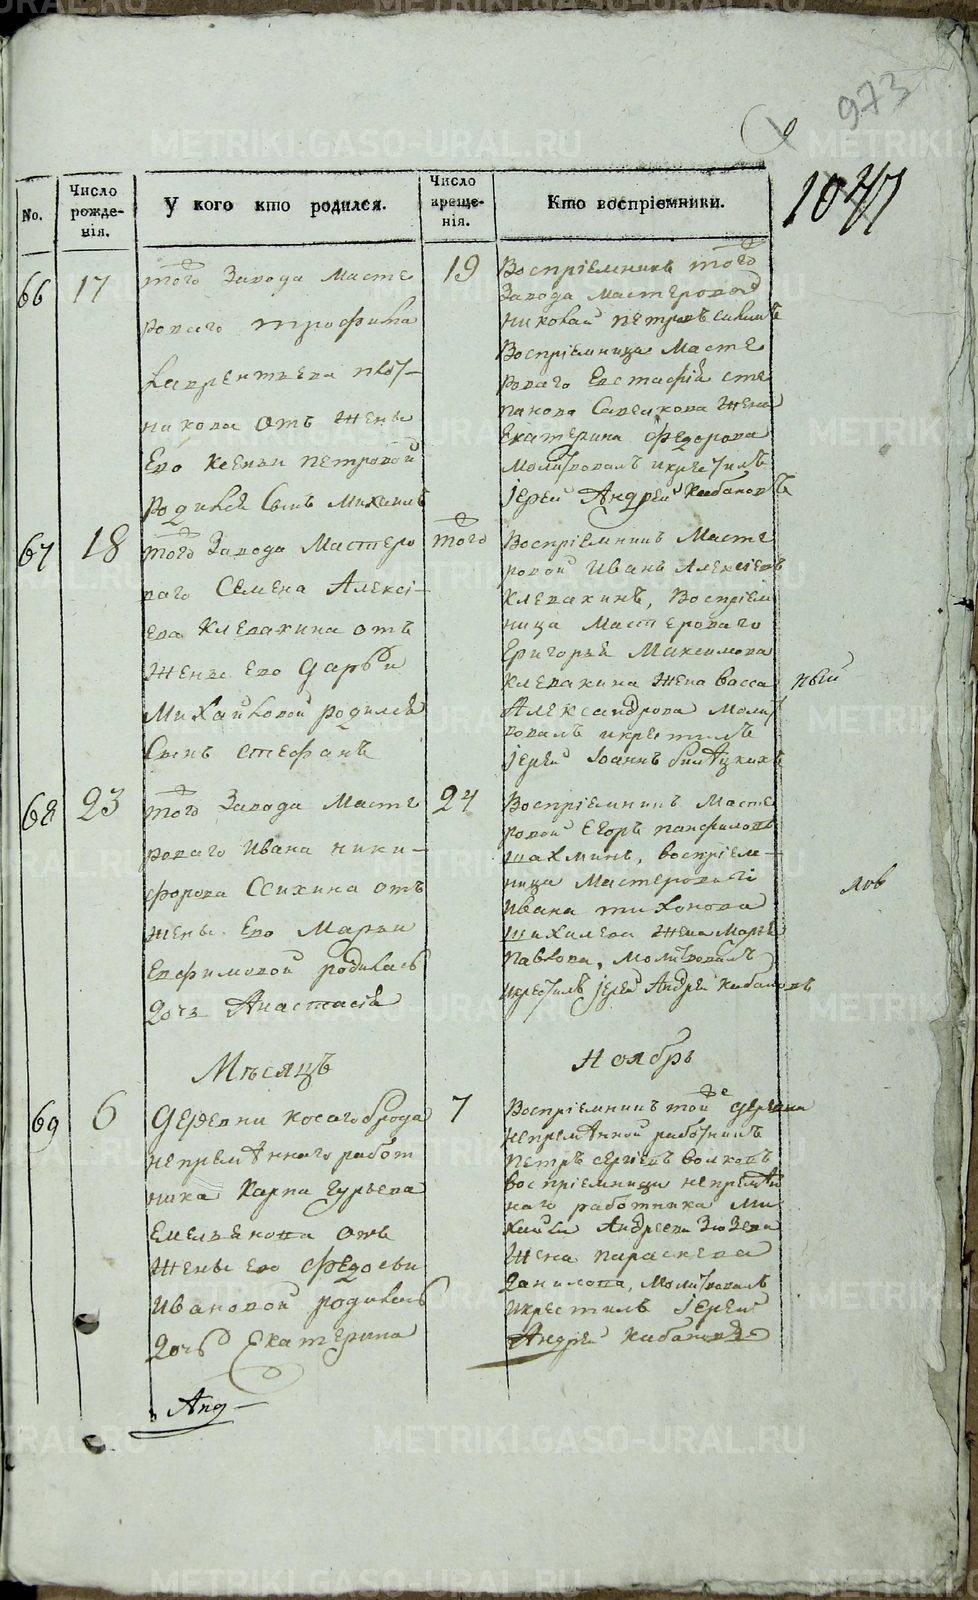 973
1047
No.
Число рожде-нія.
У кого кто родился.
Число креще-нія.
Кто воспріемники.
66
17
того Завода Масте
роваго трофима
Лаврентьева плот-
никова отъ жены
Его Ксеньи петровой
родился Сынъ Михаилъ
19
Воспріемникъ того
Завода мастеровой
николай петровъ
Воспріемница Масте
роваго Евстафія сте
панова жена
Екатерина Федорова
Молитвовалъ икрестилъ
іерей Андрей Кабаковъ
67
18
того Завода Мастеро
ваго Семена Алексі-
ева Клевакина отъ
жены его Дарьи
Михайловой родился
Сынъ стефанъ
того
Воспріемникъ Масте
ровой Иванъ Алексіевъ
Клевакинъ, Воспріем
ница Мастероваго
Григорья Максимова
Клевакина жена Васса
Александрова Молит
вовалъ икрестилъ
іерей Іоаннъ
ный
68
23
того Завода Масте
роваго Ивана ники-
форова отъ
жены Его Марьи
Евфимовой родилась
Дочь Анастасія
24
Воспріемникъ Масте
ровой Егоръ панфиловъ
шахминъ, воспріем-
ница Мастероваго
Ивана тихонова
жена Марья
Павлова, Молитвовалъ
икрестилъ іерей Андрей Кабаковъ
лов
Мѣсяцъ
Ноябрь
69
6
Деревни косагоброда
непремѣннаго работ
ника Карпа Гурьева
Емельянова отъ
жены его Федосьи
Ивановой родилась
Дочь Екатерина
7
Воспріемникъ той же Деревни
непремѣнной работникъ
петръ сергіевъ волковъ
воспріемница непремѣн
наго работника Ми
хайла Андреева Зюзева
жена параскева
Данилова, Молитвовалъ
икрестилъ іерей
Андрей Кабаковъ
Анд
METRIKI.GASO-URAL.RU